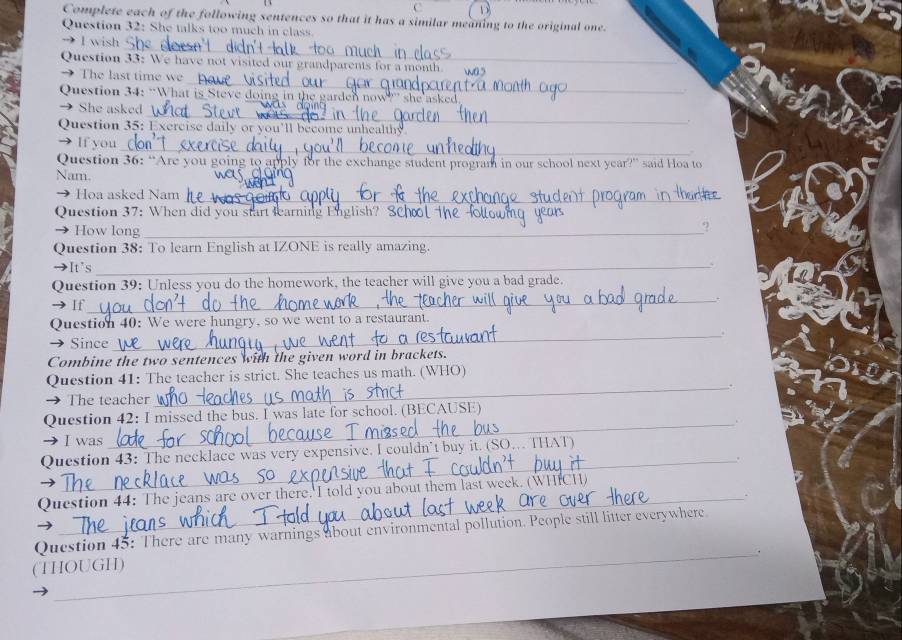 C D
Complete each of the following sentences so that it has a similar meaning to the original one.
Question 32: She talks too much in class.
→ I wish She doesn't didn't talk too much in class
Question 33: We have not visited our grandparents for a month.
was
→ The last time we have visited our grandparent a month ago
Question 34: "What is Steve doing in the garden now?" she asked.
was doing
→ She asked what Steve was do in the garden then
Question 35: Exercise daily or you'll become unhealthy.
→ If you don't exercise daily, you'll become unhealthy.
Question 36: "Are you going to apply for the exchange student program in our school next year?" said Hoa to
Nam.
was going
→ Hoa asked Nam he to apply for the exchange student program in their
Question 37: When did you start learning English? School the following years
→ How long ?
Question 38: To learn English at IZONE is really amazing.
→It's .
Question 39: Unless you do the homework, the teacher will give you a bad grade.
→ If you don't do the homework, the teacher will give you a bad grade .
Question 40: We were hungry, so we went to a restaurant.
→ Since we were hungry, we went to a restaurant .
Combine the two sentences with the given word in brackets.
Question 41: The teacher is strict. She teaches us math. (WHO)
→ The teacher who teaches us math is strict .
Question 42: I missed the bus. I was late for school. (BECAUSE)
→ I was late for school because I missed the bus .
Question 43: The necklace was very expensive. I couldn't buy it. (SO… THAT)
→ The necklace was so expensive that I couldn't buy it .
Question 44: The jeans are over there. I told you about them last week. (WHICH)
→ The jeans which I told you about last week are over there .
Question 45: There are many warnings about environmental pollution. People still litter everywhere.
(THOUGH)
→ .